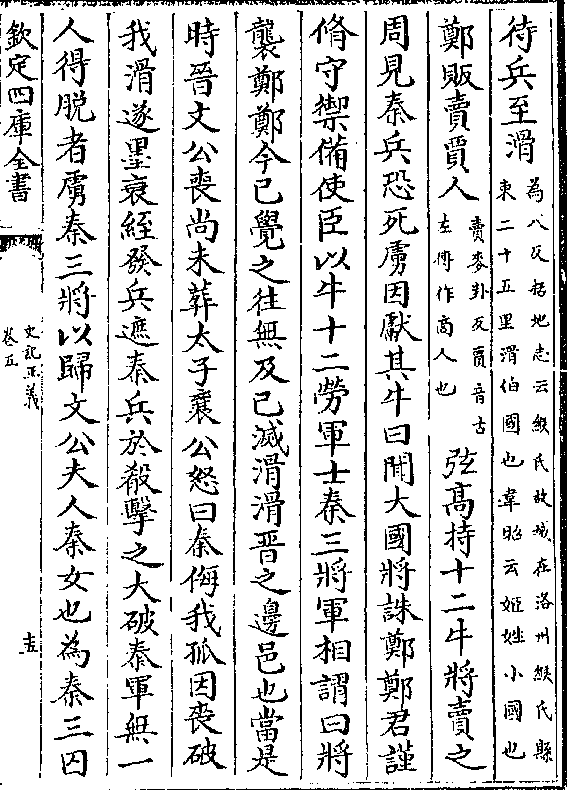 待兵至滑為八反括地志云緱氏故城在洛州緱氏縣東二十五里滑伯國也韋昭云姬姓小國也
鄭販賣賈人賣麥卦反賈音古左傳作商人也弦高持十二牛將賣之
周見秦兵恐死虜因獻其牛曰聞大國將誅鄭鄭君謹
脩守禦備使臣以牛十二勞軍士秦三將軍相謂曰將
襲鄭鄭今已覺之往無及已滅滑滑晉之邊邑也當是
時晉文公喪尚未葬太子襄公怒曰秦侮我孤因喪破
我滑遂墨衰絰發兵遮秦兵於殽擊之大破秦軍無一
人得脱者虜秦三將以歸文公夫人秦女也為秦三囚
欽定四庫全書
史記正義
卷五
十五